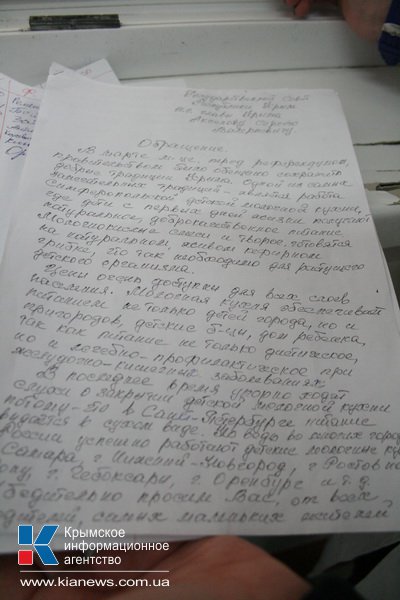 Государственный Совет
Республики Крым
И.о. главы Крыма
Аксенову Сергею
Валерьевичу.
Обращение.
В марте м-це, перед референдумом,
правительством было обещано сохранить
добрые традиции Крыма. Одной из самых
замечательных традиций - является работа
Симферопольской детской молочной кухни,
где дети с первых дней жизни получают
натуральное, доброкачественное питание
Молочнокислые смеси и творог готовятся
на натуральном, живом кефирном
грибке, что так необходимо для растущего
детского организма.
Цены очень доступны для всех слоев
населения. Молочная кухня обеспечивает
питанием не только детей города, но и
пригородов, детские б-цы, дом ребенка,
так как питание не только диетическое,
но и лечебно-профилактическое при
желудочно-кишечных заболеваниях
В последнее время упорно ходят
слухи о закрытии детской молочной кухни
потому-то в Санкт-Петербурге питание
выдается в сухом виде. Но ведь во многих город
России успешно работают детские молочные кух
Самара, г Нижний-Новгород, г Ростов на
Дону, г Чебоксары, г. Оренбург и т.д.
бедительно просим Вас, от всех
дителей, самых маленьких жителей
К
Крымское
информационное
агентство
www.kianews.com.ua